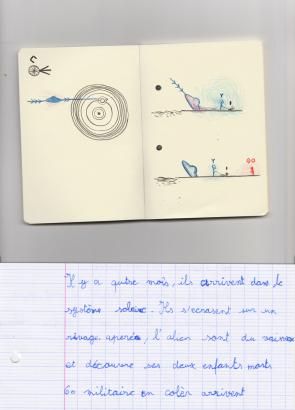 Il y a qutre mois, ils arrivent dans le
système solair. Ils s'ecrasent sur un
rivage, aperès, l'alien sont du vaisseau
et découvre ses deux enfants morts
60 militaire en colèr arrivent